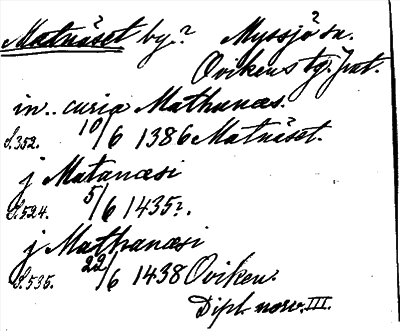 Matnäset by? Myssjö sn.
Ovikens tg. Jmt.
in.. curia Mathanæs.
S. 352. 10/6 1386 Matnäset.
j Matanæsi
S. 524. 5/6 1435?.
j Mathanæsi
S. 535. 22/6 1438 Oviken.
Dipl. norv. III.